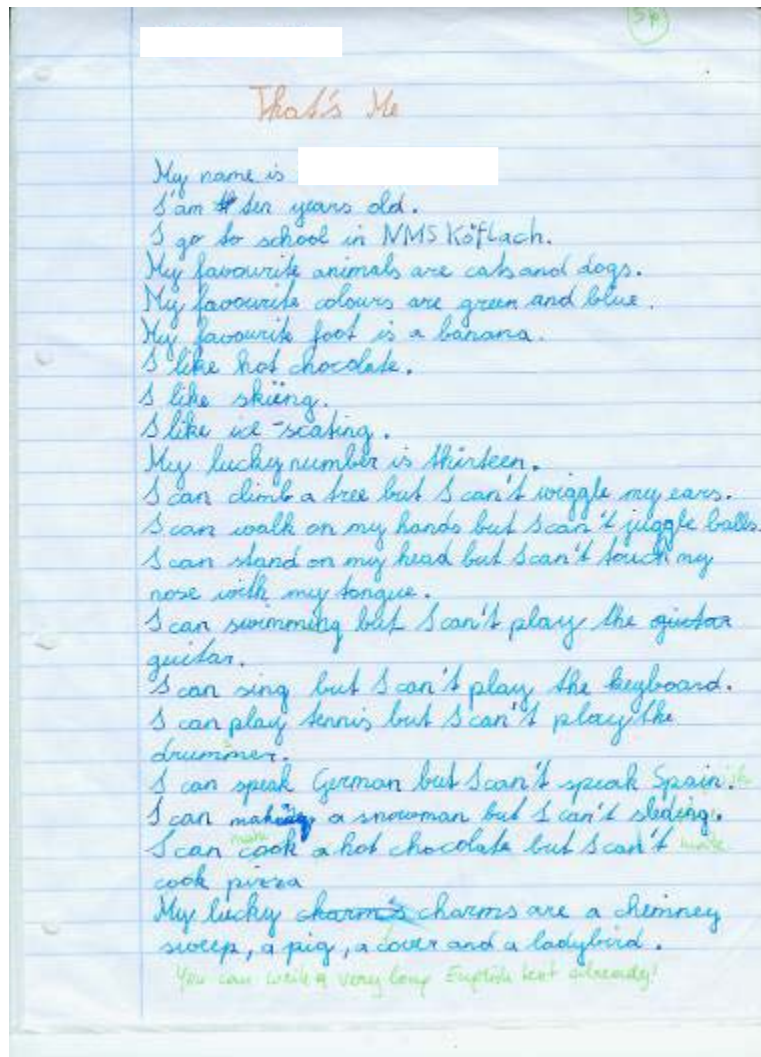 5p
That's Me
My name is
I'am ten years old.
I go to school in NMS Köflach.
My favourite animals are cats and dogs.
My favourite colours are green and blue.
My favourite foot is a banana.
I like hot chocolate.
I like skiing.
I like ice-scating.
My lucky number is thirteen.
I can climb a tree but I can't wiggle my ears.
I can walk on my hands but I can't juggle balls.
I can stand on my head but I can't touch my
nose with my tongue.
I can swimming but I can't play the guitar
guitar.
I can sing but I can't play the keyboard.
I can play tennis but I can't play the
drummer.
I can speak German but I can't speak Spain. ish
I can making a snowman but I can't sleding.
I can cook a hot chocolate but I can't
make
cook pizza
My lucky charm's charms are a chimney
sweep, a pig, a cover and a ladybird.
You can write a very long English text already!